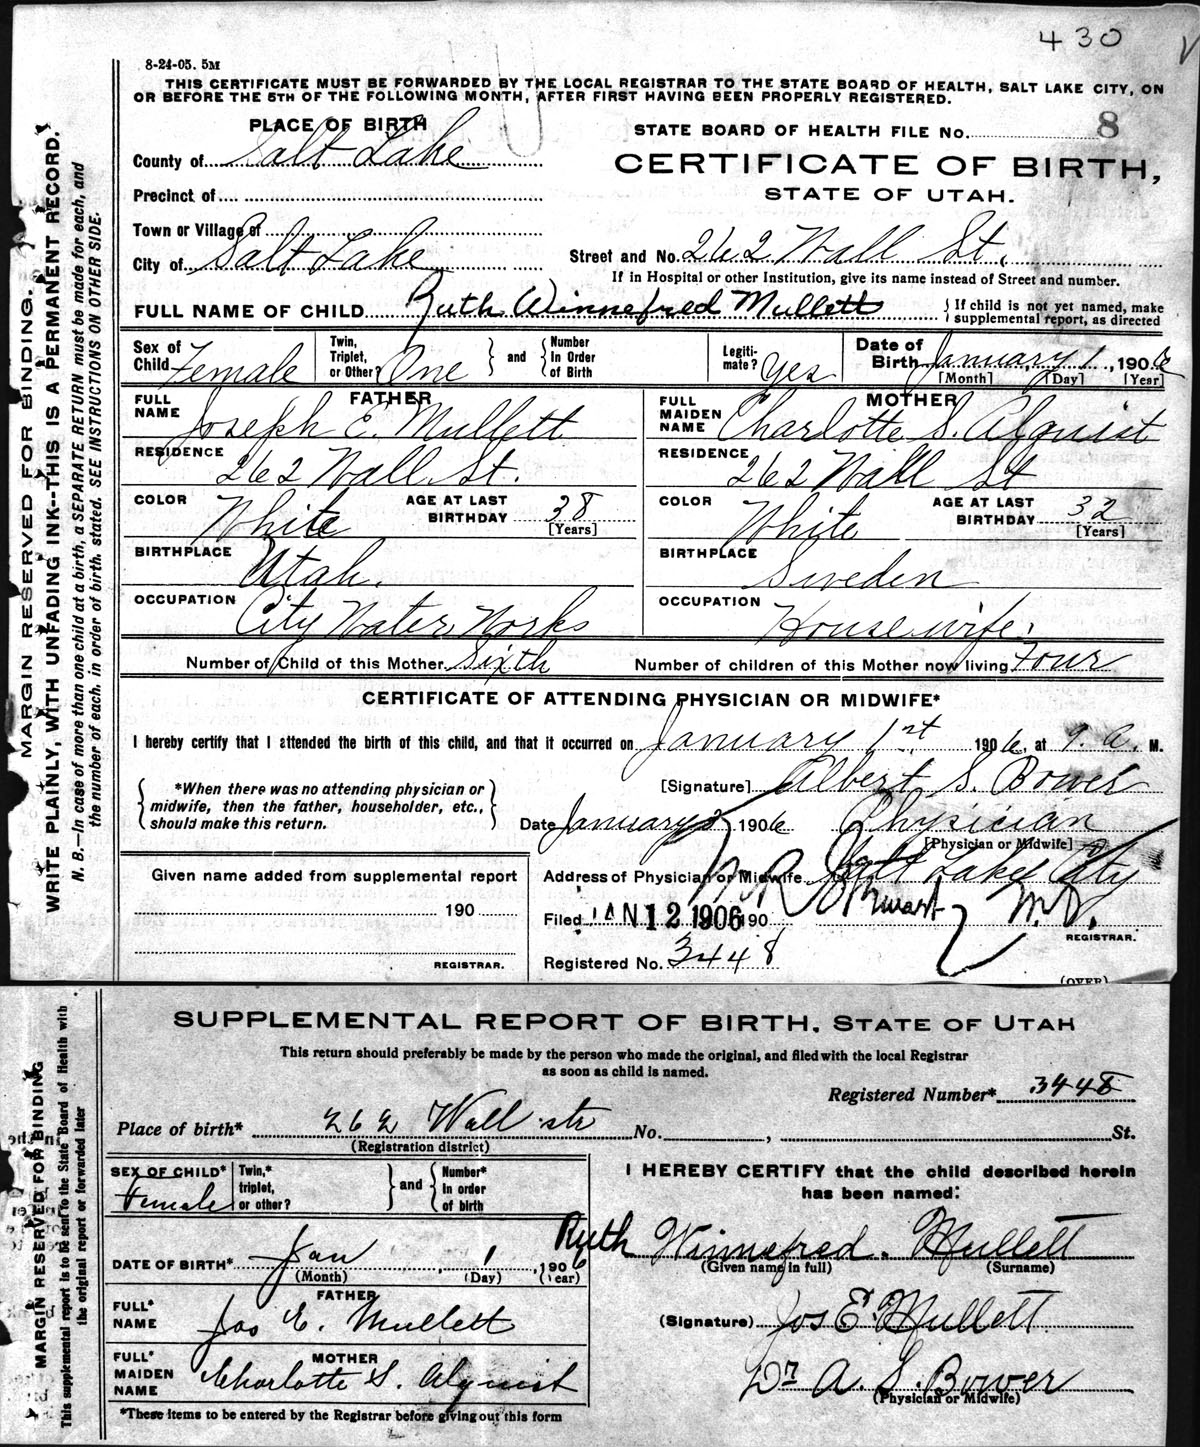 430
8-24-05. 5M
THIS CERTIFICATE MUST BE FORWARDED BY THE LOCAL REGISTRAR TO THE STATE BOARD OF HEALTH, SALT LAKE CITY, ON
OR BEFORE THE 5TH OF THE FOLLOWING MONTH, AFTER FIRST HAVING BEEN PROPERLY REGISTERED.
MARGIN RESERVED FOR BINDING.
WRITE PLAINLY, WITH UNFADING INK--THIS IS A PERMANENT RECORD.
N. B.—In case of more than one child at a birth, a SEPARATE RETURN must be made for each, and
the number of each, in order of birth, stated. SEE INSTRUCTIONS ON OTHER SIDE.
PLACE OF BIRTH
County of Salt Lake
Precinct of
Town or Village of
City of Salt Lake
STATE BOARD OF HEALTH FILE No. 8
CERTIFICATE OF BIRTH,
STATE OF UTAH.
Street and No. 262 Wall St.
If in Hospital or other Institution, give its name instead of Street and number.
FULL NAME OF CHILD Ruth Winnefred Mullett { If child is not yet named, make
supplemental report, as directed
Sex of Child Female
Twin, Triplet, or Other? One } and { Number In Order of Birth
Legiti-mate? Yes
Date of Birth January 1, 1906
[Month] [Day] [Year]
FATHER
FULL NAME Joseph E. Mullett
RESIDENCE 262 Wall St.
COLOR White AGE AT LAST BIRTHDAY 38 [Years]
BIRTHPLACE Utah.
OCCUPATION City Water Works
MOTHER
FULL MAIDEN NAME Charlotte S. Alquist
RESIDENCE 262 Wall St
COLOR White AGE AT LAST BIRTHDAY 32 [Years]
BIRTHPLACE Sweden
OCCUPATION Housewife.
Number of Child of this Mother Sixth Number of children of this Mother now living Four
CERTIFICATE OF ATTENDING PHYSICIAN OR MIDWIFE*
I hereby certify that I attended the birth of this child, and that it occurred on January 1st 1906, at 9. a. M.
{ *When there was no attending physician or
midwife, then the father, householder, etc.,
should make this return. }
[Signature] Albert S. Bower
Date January 1906 Physician
[Physician or Midwife]
Address of Physician or Midwife Salt Lake City
Given name added from supplemental report
190
REGISTRAR.
Filed JAN 12 1906 190 M.D.
REGISTRAR.
Registered No. 3448
(OVER)
MARGIN RESERVED FOR BINDING
This supplemental report is to be sent to the State Board of Health with
the original report or forwarded later
SUPPLEMENTAL REPORT OF BIRTH, STATE OF UTAH
This return should preferably be made by the person who made the original, and filed with the local Registrar
as soon as child is named.
Registered Number* 3448
Place of birth* 262 Wall str No. , St.
(Registration district)
SEX OF CHILD* Female
Twin,* triplet, or other? } and { Number* In order of birth
DATE OF BIRTH* Jan 1, 1906
(Month) (Day) (Year)
FATHER
FULL* NAME Jos E. Mullett
MOTHER
FULL* MAIDEN NAME Charlotte S. Alquist
*These items to be entered by the Registrar before giving out this form
I HEREBY CERTIFY that the child described herein
has been named:
Ruth Winnefred. Mullett
(Given name in full) (Surname)
(Signature) Jos E. Mullett
Dr A. S. Bower
(Physician or Midwife)